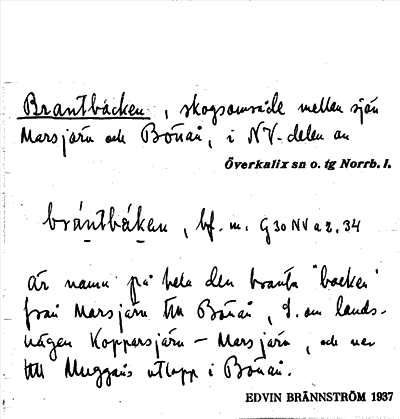 Brantbäcken, skogsområde mellan sjön
Marsjärn och Bönån, i NV-delen av
Överkalix sn o. tg Norrb. l.
brántbák̠en, bf. m. G 30 NV a 2. 34
är namn på hela den branta "backen"
från Marsjärn till Bönån, Ö. om lands-
vägen Kopparsjärn – Marsjärn, och ner
till Muggåns utlopp i Bönån.
EDVIN BRÄNNSTRÖM 1937